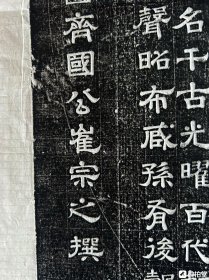 名千古光曜百代
聲昭布咸孫後
齊國公崔宗之撰